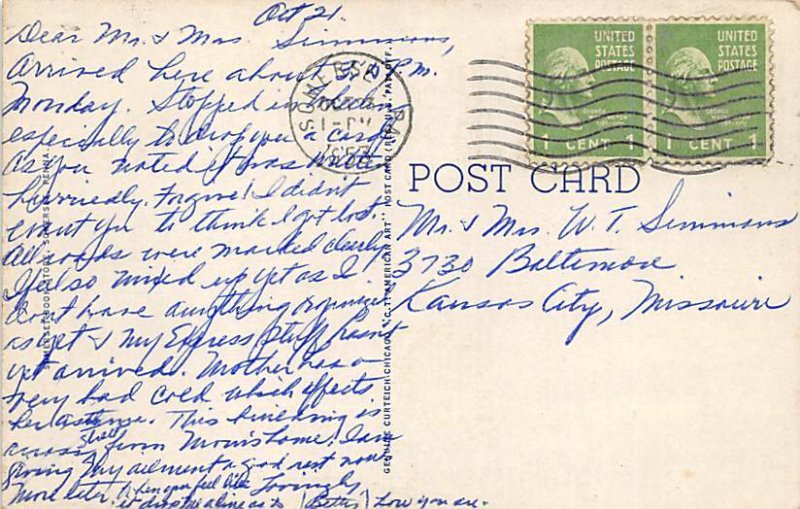 Oct 21.
Dear Mr. & Mrs. Simmons,
Arrived here about 5 P.M.
Monday. Stopped in
especially to drop you a card
as you noted it was written
hurriedly. Forgive! I didn't
want you to think I got lost.
All roads were marked clearly
I feel so mixed up yet as I
don't have anything organized
as yet & my Express stuff hasn't
yet arrived. Mother has a
very bad cold which effects
her asthma. This building is
across street from Mom's home. I am
giving my ailment a good rest now.
More later. Lovingly
When you feel like
it drop me a line as to how you are.
Betty
SOMERSET
PA.
UNITED
STATES
POSTAGE
1 CENT 1
UNITED
STATES
POSTAGE
1 CENT 1
POST CARD
Mr. & Mrs. W. T. Simmons
3730 Baltimore
Kansas City, Missouri
GENUINE CURTEICH-CHICAGO "C.T. AMERICAN ART" POST CARD (REG. U.S. PAT. OFF.)